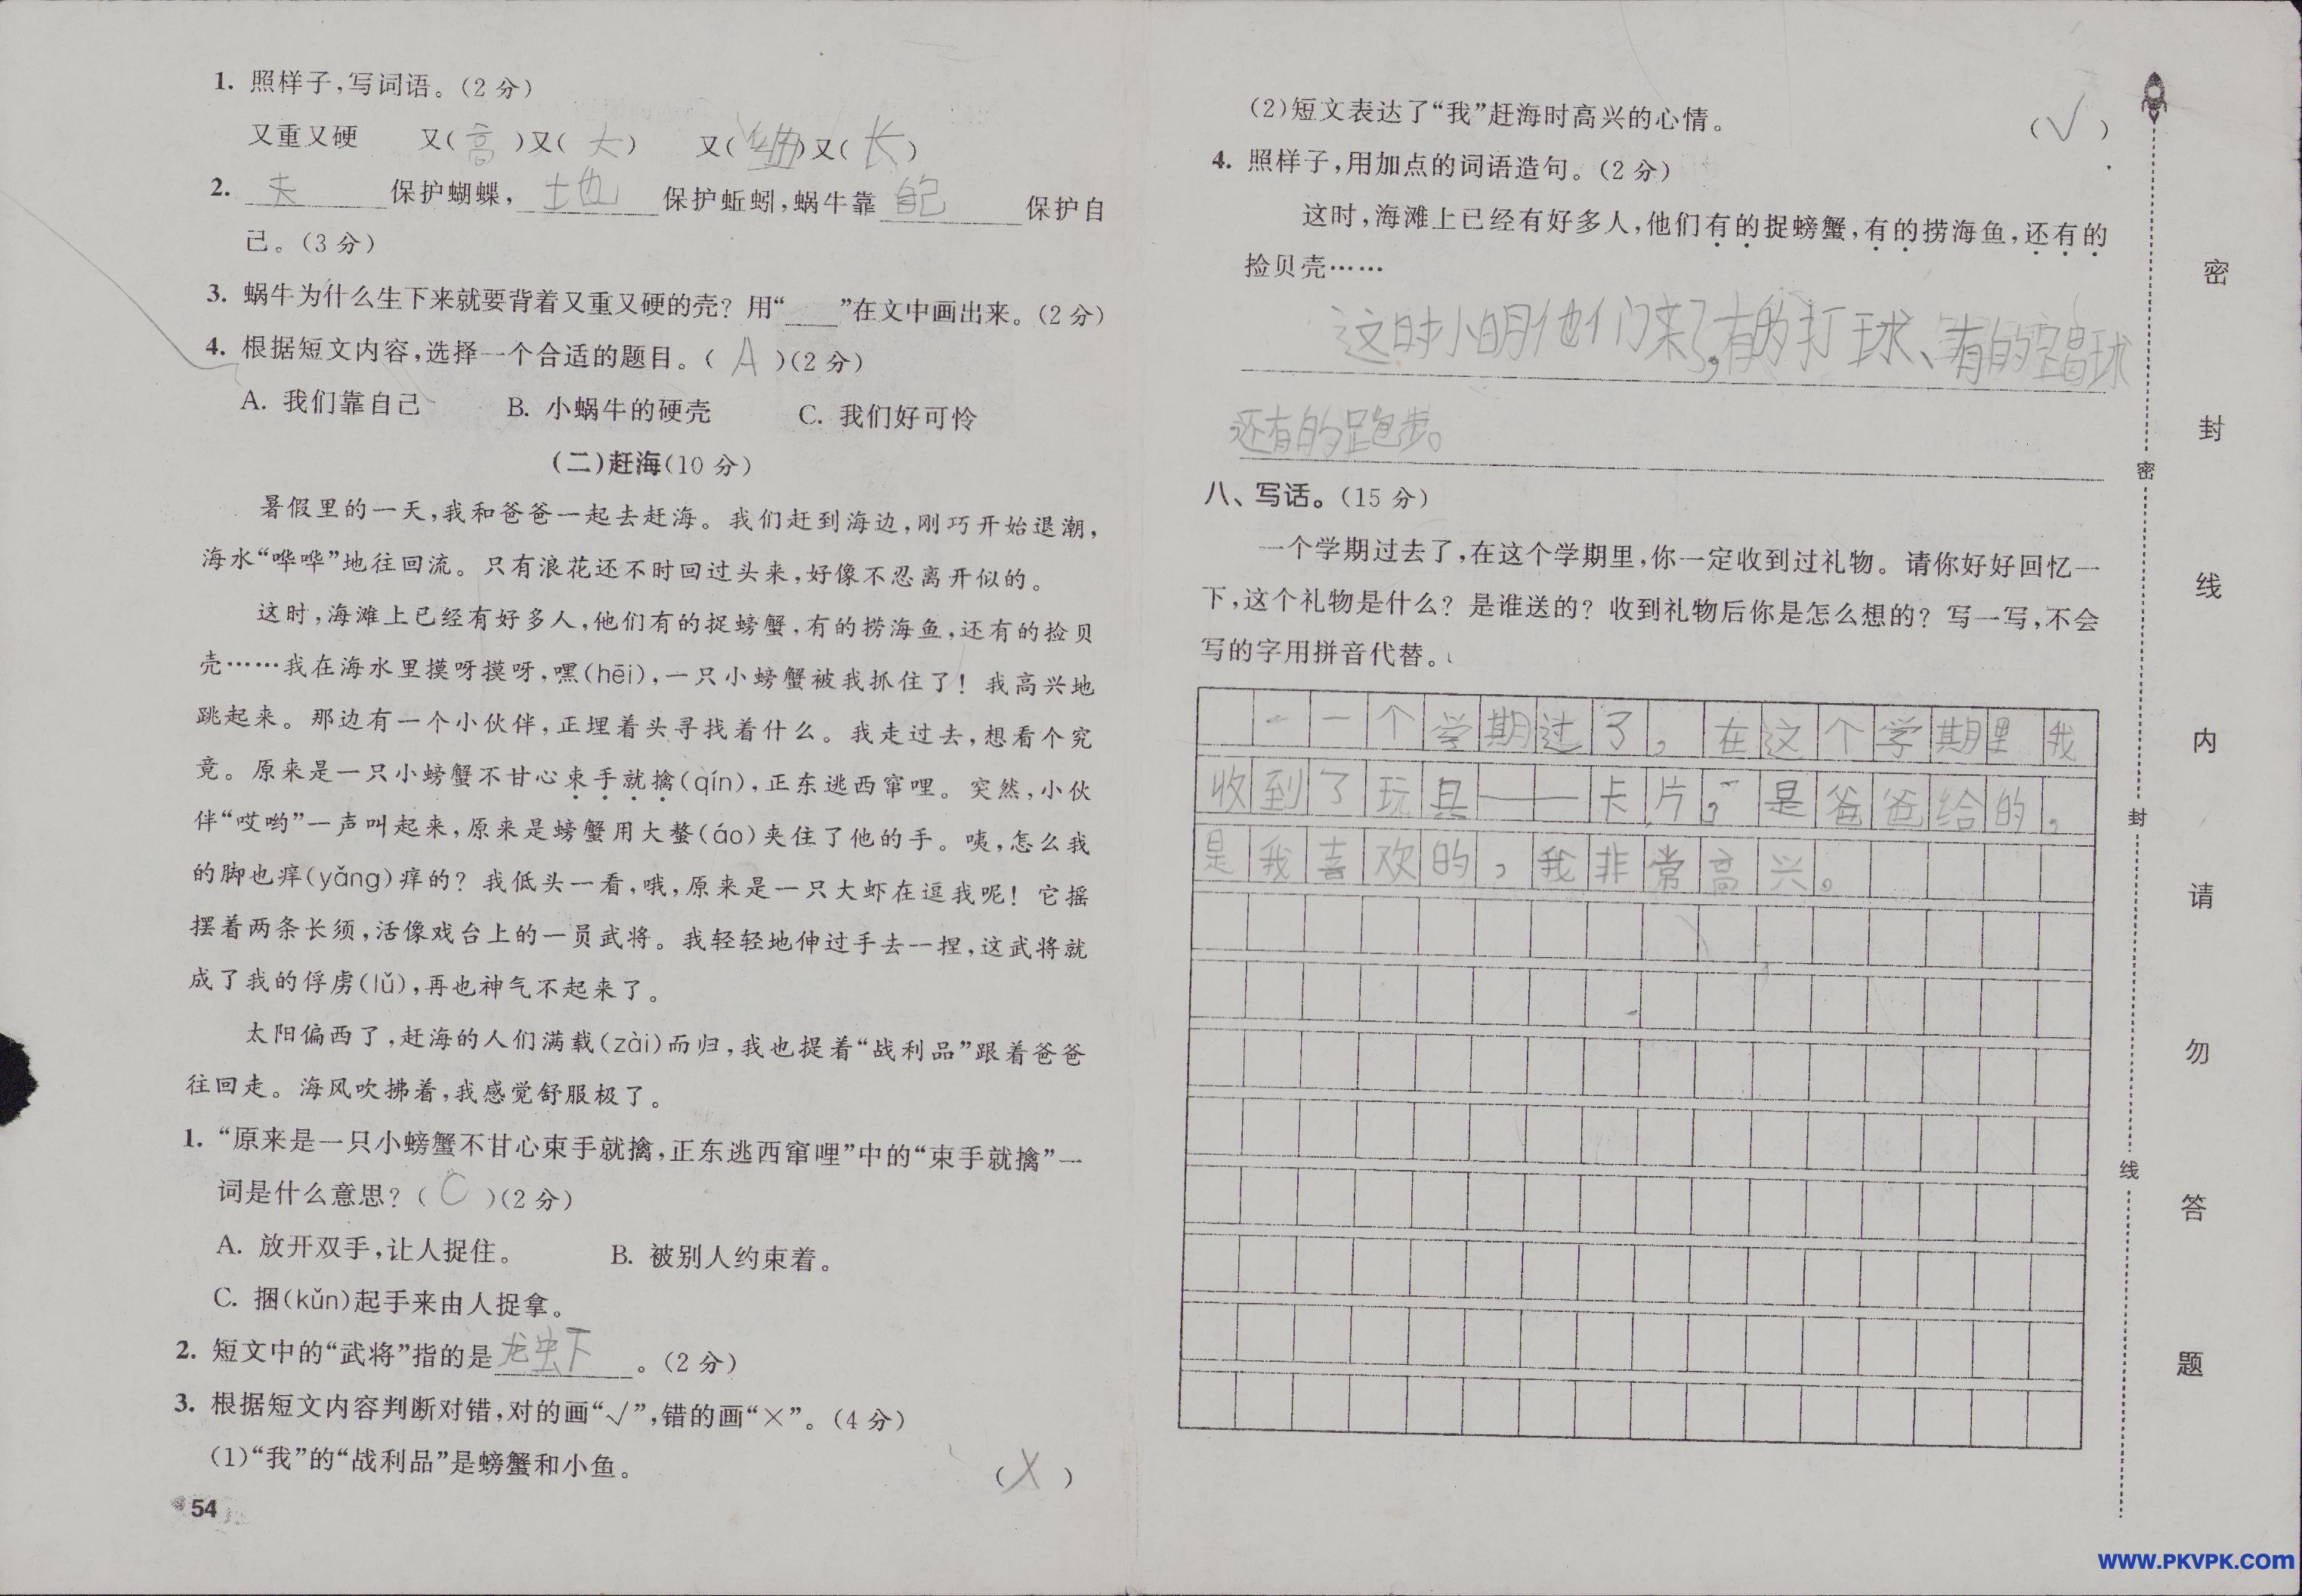 1. 照样子,写词语。(2 分)
又重又硬 又(高)又(大) 又(细)又(长)
2. 保护蝴蝶, 土也 保护蚯蚓,蜗牛靠 自己 保护自
己。(3 分)
3. 蜗牛为什么生下来就要背着又重又硬的壳? 用“___”在文中画出来。(2 分)
4. 根据短文内容,选择一个合适的题目。( A )(2 分)
A. 我们靠自己 B. 小蜗牛的硬壳 C. 我们好可怜
(二)赶海(10 分)
暑假里的一天,我和爸爸一起去赶海。我们赶到海边,刚巧开始退潮,
海水“哗哗”地往回流。只有浪花还不时回过头来,好像不忍离开似的。
这时,海滩上已经有好多人,他们有的捉螃蟹,有的捞海鱼,还有的捡贝
壳……我在海水里摸呀摸呀,嘿(hēi),一只小螃蟹被我抓住了! 我高兴地
跳起来。那边有一个小伙伴,正埋着头寻找着什么。我走过去,想看个究
竟。原来是一只小螃蟹不甘心束手就擒(qín),正东逃西窜哩。突然,小伙
伴“哎哟”一声叫起来,原来是螃蟹用大螯(áo)夹住了他的手。咦,怎么我
的脚也痒(yǎng)痒的? 我低头一看,哦,原来是一只大虾在逗我呢! 它摇
摆着两条长须,活像戏台上的一员武将。我轻轻地伸过手去一捏,这武将就
成了我的俘虏(lǔ),再也神气不起来了。
太阳偏西了,赶海的人们满载(zài)而归,我也提着“战利品”跟着爸爸
往回走。海风吹拂着,我感觉舒服极了。
1. “原来是一只小螃蟹不甘心束手就擒,正东逃西窜哩”中的“束手就擒”一
词是什么意思? ( C )(2 分)
A. 放开双手,让人捉住。 B. 被别人约束着。
C. 捆(kǔn)起手来由人捉拿。
2. 短文中的“武将”指的是 龙虾 。(2 分)
3. 根据短文内容判断对错,对的画“√”,错的画“×”。(4 分)
(1)“我”的“战利品”是螃蟹和小鱼。 (×)
54
(2)短文表达了“我”赶海时高兴的心情。 (√)
4. 照样子,用加点的词语造句。(2 分)
这时,海滩上已经有好多人,他们有的捉螃蟹,有的捞海鱼,还有的
捡贝壳……
这时小明他们来了,有的打球、有的踢球
还有的跑步。
八、写话。(15 分)
一个学期过去了,在这个学期里,你一定收到过礼物。请你好好回忆一
下,这个礼物是什么? 是谁送的? 收到礼物后你是怎么想的? 写一写,不会
写的字用拼音代替。
一个学期过了,在这个学期里我
收到了玩具——卡片,是爸爸给的,
是我喜欢的,我非常高兴。
密
封
线
内
请
勿
答
题
密
封
线
www.PKVPK.com